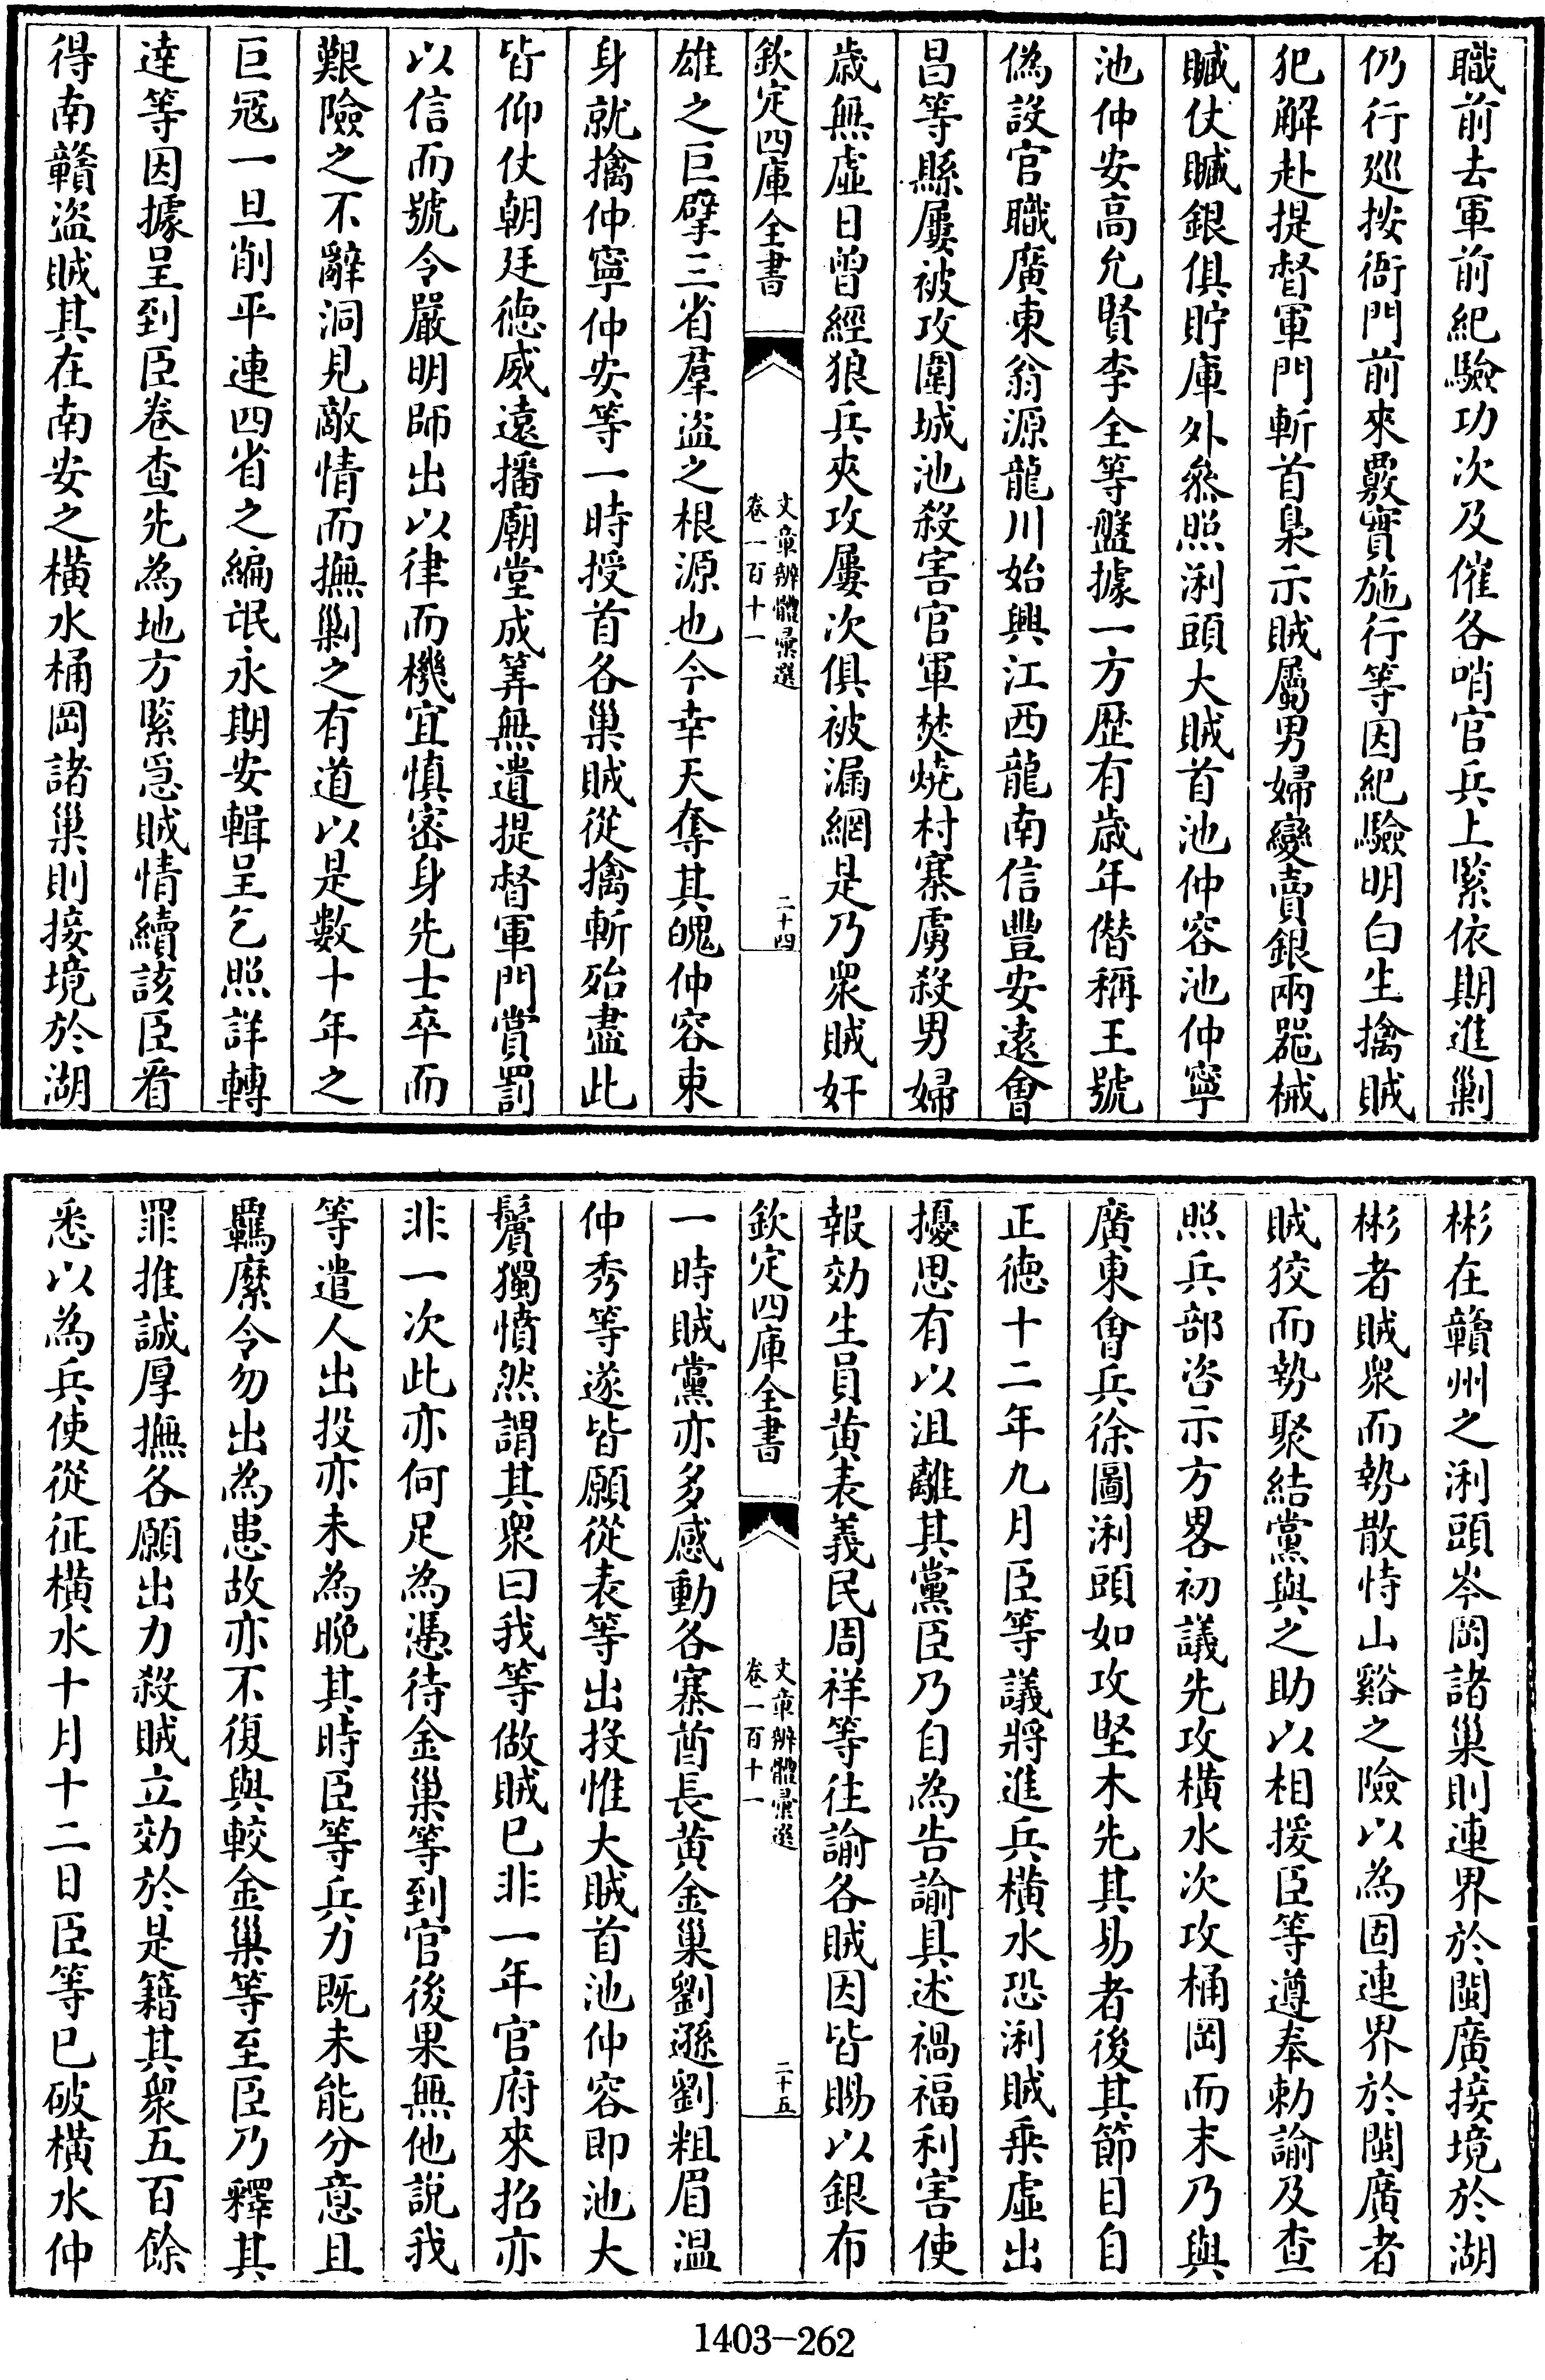 職前去軍前紀驗功次及催各哨官兵上緊依期進剿
仍行廵按衙門前來覈實施行等因紀驗明白生擒賊
犯解赴提督軍門斬首梟示賊屬男婦變賣銀兩器械
贓仗贓銀俱貯庫外叅照浰頭大賊首池仲容池仲寧
池仲安高允賢李全等盤據一方歴有歳年僭稱王號
偽設官職廣東翁源龍川始興江西龍南信豐安遠會
昌等縣屢被攻圍城池殺害官軍焚燒村寨虜殺男婦
歳無虛日曾經狼兵夾攻屢次俱被漏網是乃衆賊奸
欽定四庫全書
文章辨體彚選
卷一百十一
二十四
雄之巨擘三省羣盜之根源也今幸天奪其魄仲容束
身就擒仲寧仲安等一時授首各巢賊從擒斬殆盡此
皆仰仗朝廷徳威遠播廟堂成筭無遺提督軍門賞罰
以信而號令嚴明師出以律而機宜慎密身先士卒而
艱險之不辭洞見敵情而撫剿之有道以是數十年之
巨宼一旦削平連四省之編氓永期安輯呈乞照詳轉
達等因據呈到臣卷查先為地方緊急賊情續該臣看
得南贛盜賊其在南安之橫水桶岡諸巢則接境於湖
彬在贛州之浰頭岑岡諸巢則連界於閩廣接境於湖
彬者賊衆而勢散恃山谿之險以為固連界於閩廣者
賊狡而勢聚結黨與之助以相援臣等遵奉勅諭及查
照兵部咨示方畧初議先攻橫水次攻桶岡而末乃與
廣東會兵徐圖浰頭如攻堅木先其易者後其節目自
正徳十二年九月臣等議將進兵橫水恐浰賊乘虛出
擾思有以沮離其黨臣乃自為告諭具述禍福利害使
報効生員黄表義民周祥等往諭各賊因皆賜以銀布
欽定四庫全書
文章辨體彚選
卷一百十一
二十五
一時賊黨亦多感動各寨酋長黄金巢劉遜劉粗眉温
仲秀等遂皆願從表等出投惟大賊首池仲容即池大
鬢獨憤然謂其衆曰我等做賊已非一年官府來招亦
非一次此亦何足為憑待金巢等到官後果無他説我
等遣人出投亦未為晚其時臣等兵力既未能分意且
羈縻令勿出為患故亦不復與較金巢等至臣乃釋其
罪推誠厚撫各願出力殺賊立効於是籍其衆五百餘
悉以為兵使從征橫水十月十二日臣等已破橫水仲
1403-262